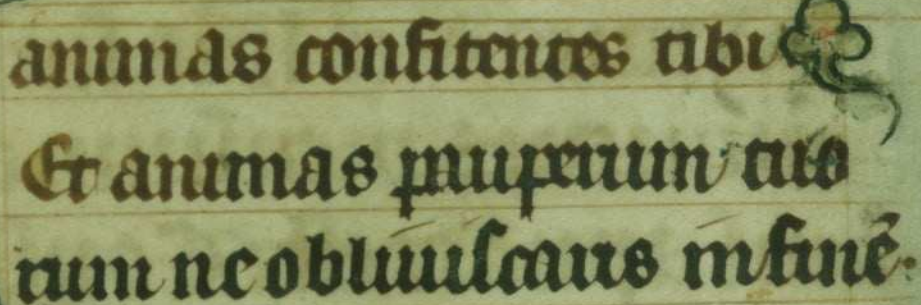 animas confitentes tibi
Et animas pauperum tuo
rum ne obliuiscaris in finē.